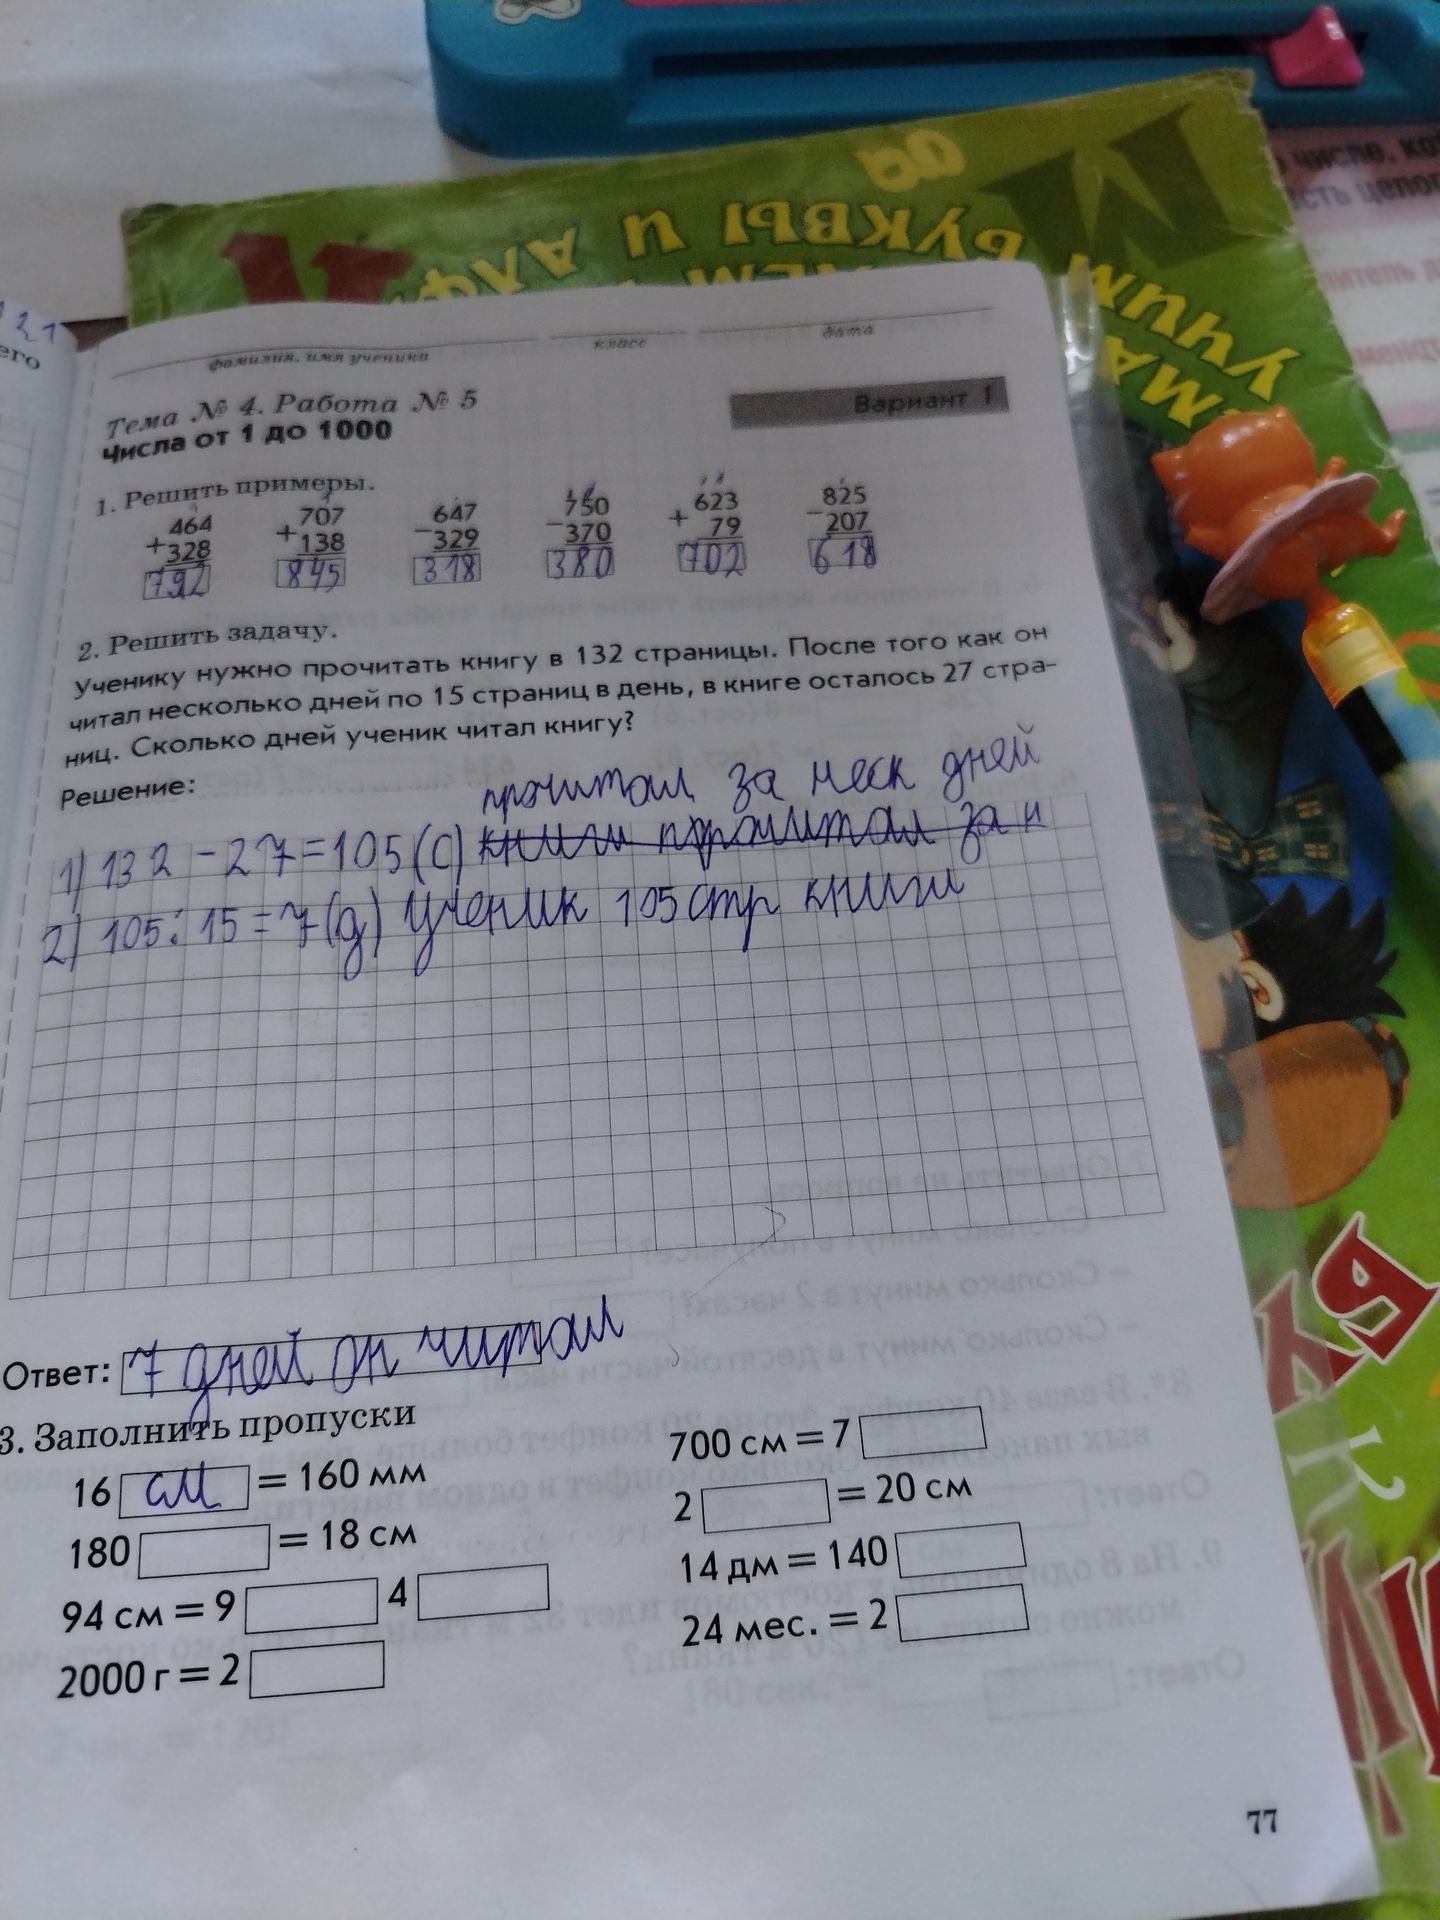 фамилия, имя ученика класс дата
Тема № 4. Работа № 5 Вариант 1
Числа от 1 до 1000
1. Решить примеры.
464 707 647 750 623 825
+328 +138 −329 −370 + 79 −207
792 845 318 380 702 618
2. Решить задачу.
Ученику нужно прочитать книгу в 132 страницы. После того как он
читал несколько дней по 15 страниц в день, в книге осталось 27 стра-
ниц. Сколько дней ученик читал книгу?
Решение:
прочитал за неск дней
1) 132 - 27 = 105 (с) книги прочитал за н
2) 105 : 15 = 7 (д) ученик 105 стр книги
Ответ: 7 дней он читал
3. Заполнить пропуски
16 см = 160 мм
180 = 18 см
94 см = 9 4
2000 г = 2
700 см = 7
2 = 20 см
14 дм = 140
24 мес. = 2
77
БУКВЫ И
УЧИМ